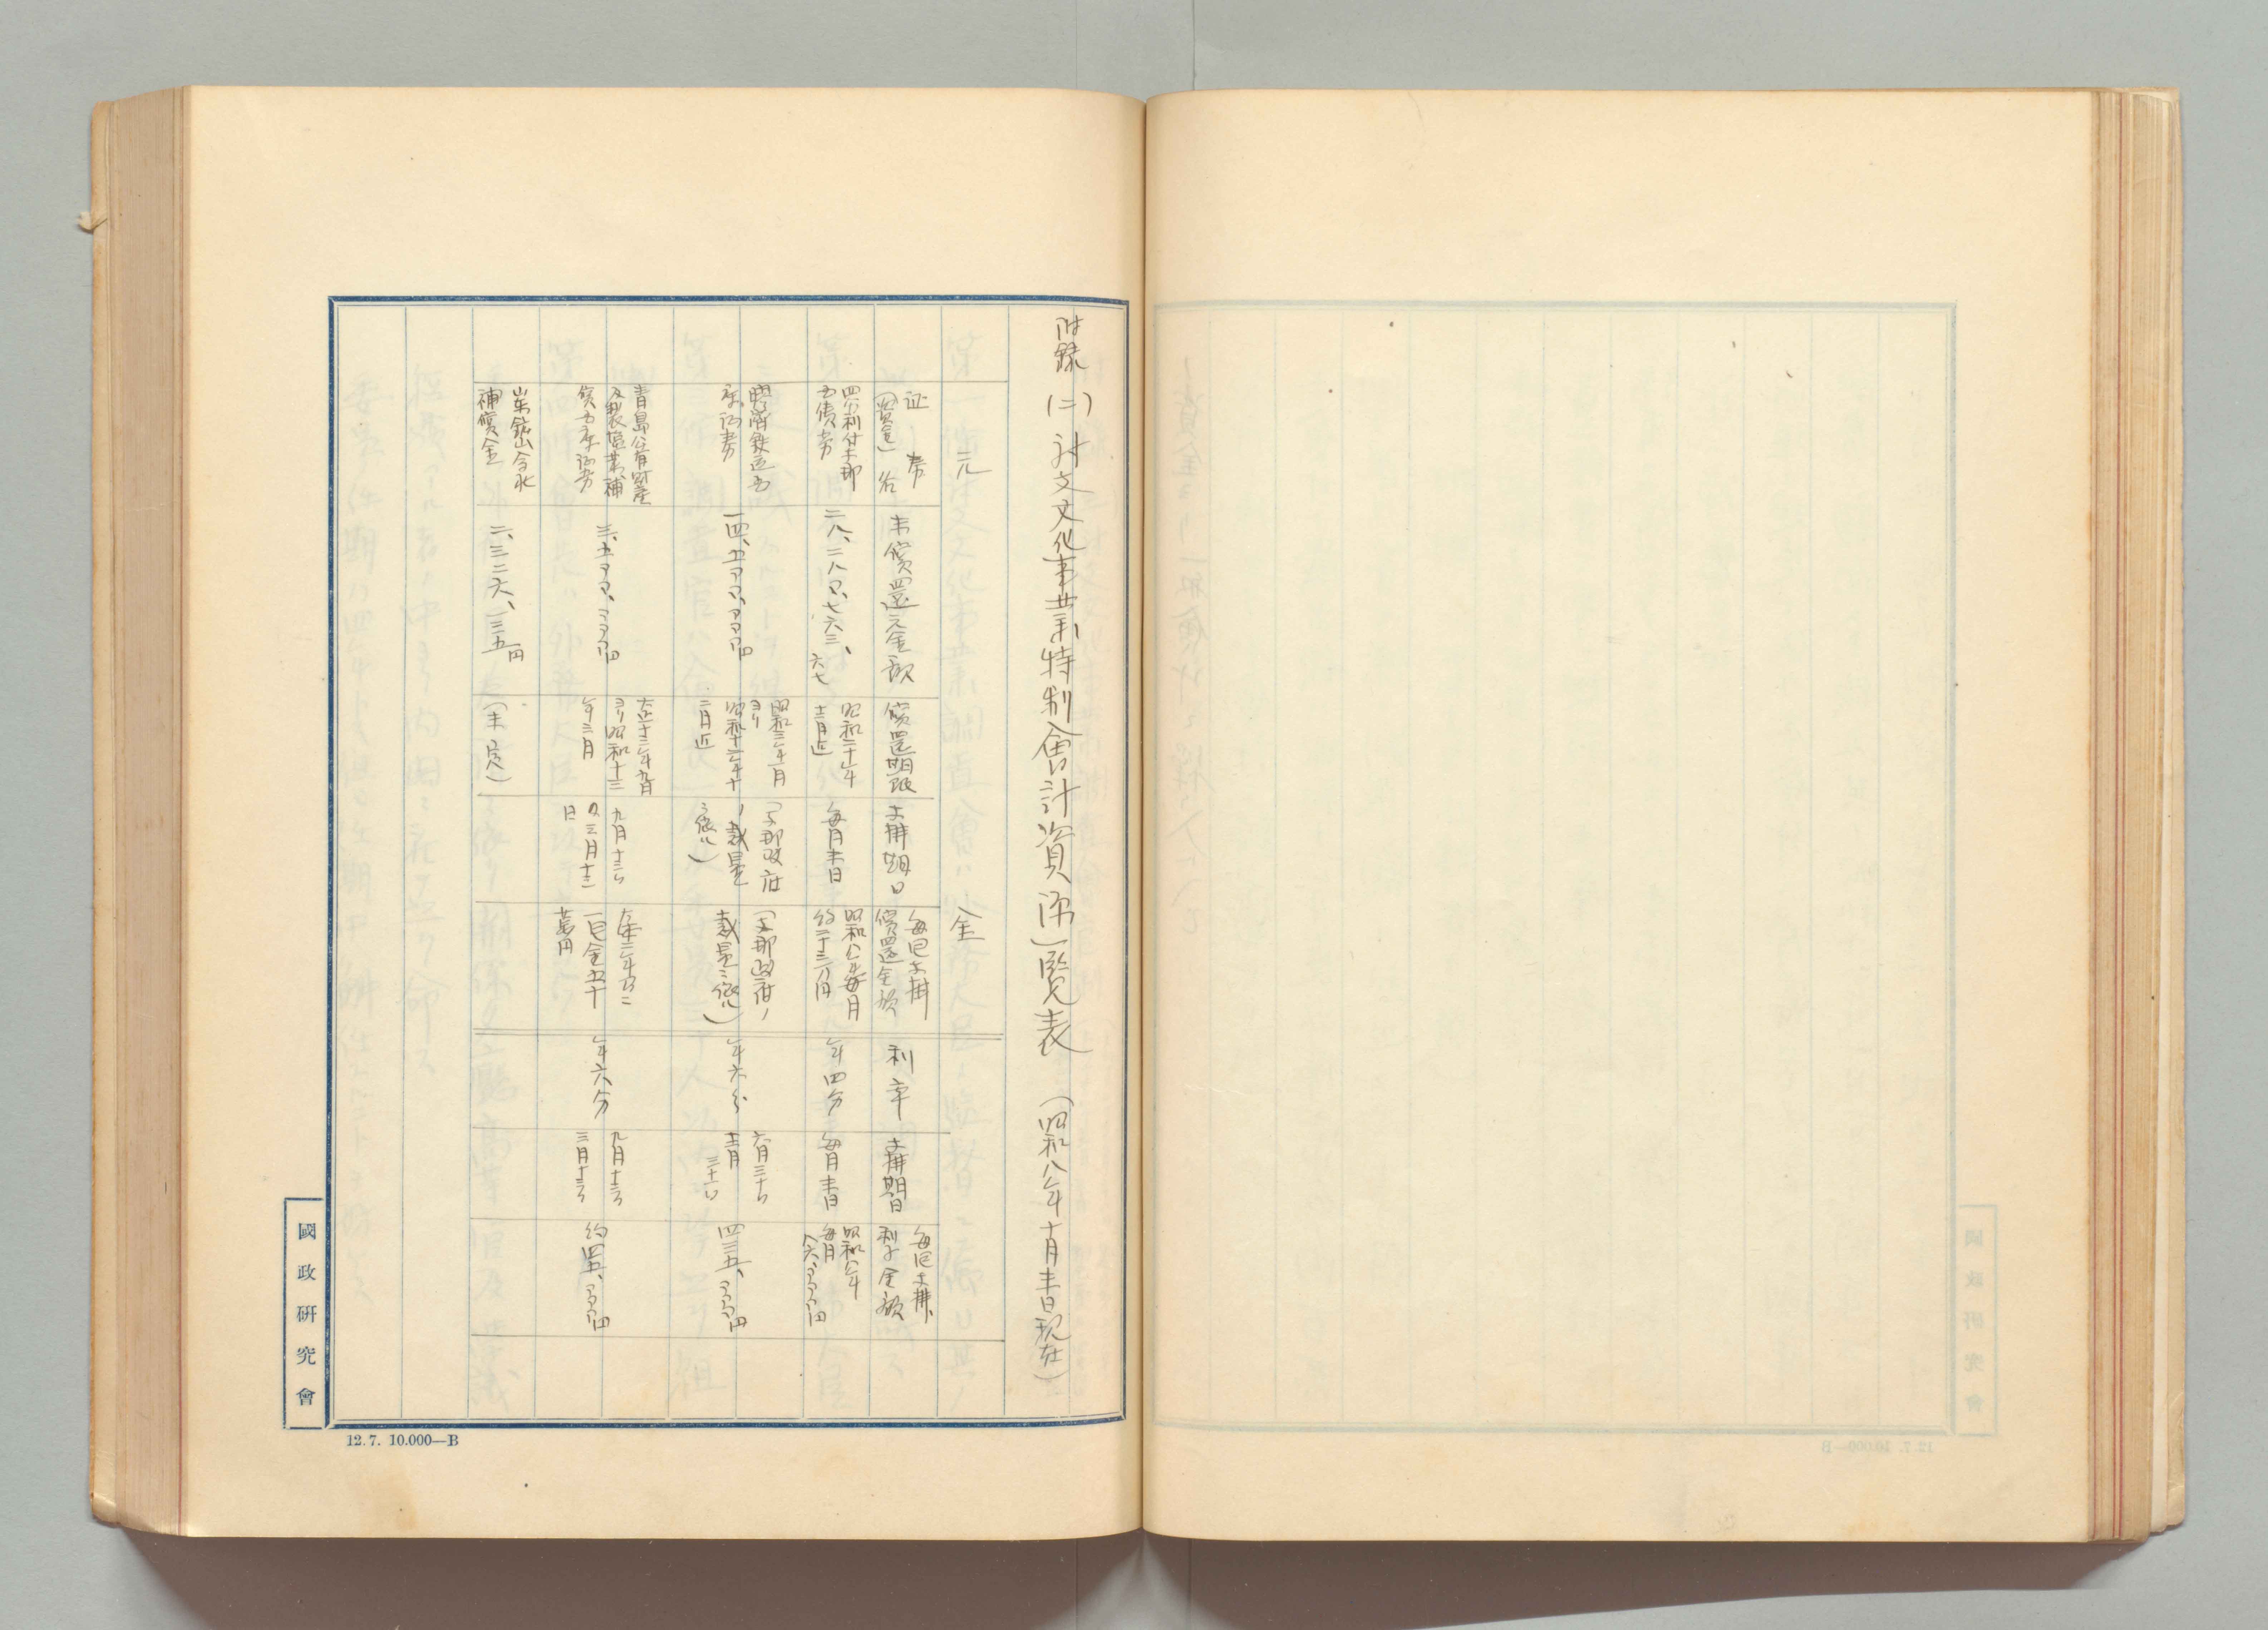 附録(二) 対支文化事業特別会計資源一覧表 (昭和八年十月末日現在)
元 金
証券(資金)名
未償還元金額
償還期限
支拂期日
毎回支拂
償還金額
利率
支拂期日
毎回支拂
利子金額
四分利付支那
国債券
二八、二八〇、七六三、
六七
昭和二十年
十二月迄
毎月末日
昭和八年毎月
約二十三万円
年四分
毎月末日
昭和八年
毎月
八六、〇〇〇円
膠済鉄道国
庫証券
一四、五〇〇、〇〇〇円
昭和三年一月
ヨリ
昭和十二年十
二月迄
(支那政府
ノ裁量
ニ依ル)
(支那政府ノ
裁量ニ依ル)
年六分
六月三十日
十二月
三十一日
四三五、〇〇〇円
青島公有財産
及製塩業補
償国庫証券
三、五〇〇、〇〇〇円
大正十三年九月
ヨリ昭和十三
年三月
九月十三日
及三月十三
日
一回金五十
萬円
年六分
九月十三日
三月十三日
約四五、〇〇〇円
山東鉱山会社
補償金
二、三二六、一三五円
(未定)
國政研究會
12.7. 10.000—B